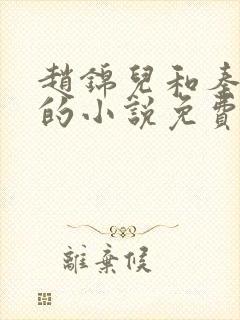 趙錦兒和秦
的小說免費
離棄侯